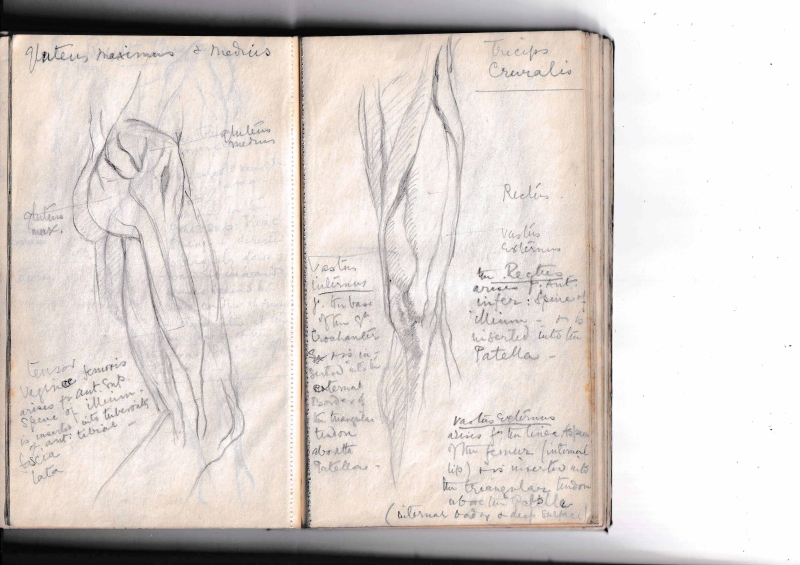 Gluteus maximus & medius
gluteus
medius
gluteus
max.
tensor
vaginae femoris
arises fr. ant. sup.
Spine of illium.
is inserted into tuberosity
of ant: tibial -
fascia
lata
Triceps
Cruralis
Rectus.
Vastus
Externus
the Rectus
arises f. Ant.
infer: Spine of
illium - & is
inserted into the
Patella -
Vastus
internus
f. the base
of the gt.
trochanter
& is in-
serted into the
external
border of
the triangular
tendon
above the
Patella -
vastus externus
arises f. the linea Aspera
of the femur (internal
lip) & is inserted into
the triangular tendon
above the Patella
(internal border & deep surface)